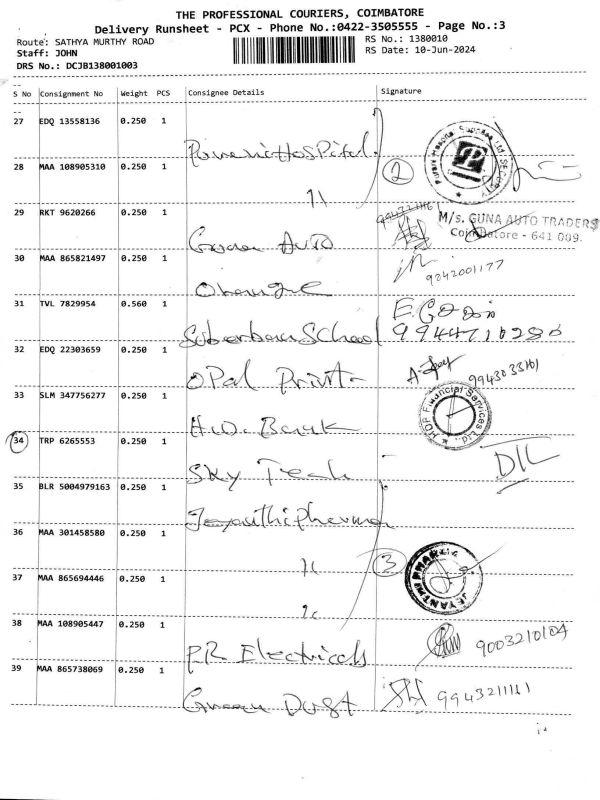 THE PROFESSIONAL COURIERS, COIMBATORE
Delivery Runsheet - PCX - Phone No.:0422-3505555 - Page No.:3
Route: SATHYA MURTHY ROAD
RS No.: 1380010
Staff: JOHN
RS Date: 10-Jun-2024
DRS No.: DCJB138001003
S No Consignment No Weight PCS Consignee Details Signature
27 EDQ 13558136 0.250 1
Hospital
28 MAA 108905310 0.250 1
2
29 RKT 9620266 0.250 1
M/s. GUNA AUTO TRADERS
Coimbatore - 641 009.
Guna Auto
30 MAA 865821497 0.250 1
9842001177
31 TVL 7829954 0.560 1
Suberban School
9944710280
32 EDQ 22303659 0.250 1
Opal Print
9943033101
33 SLM 347756277 0.250 1
HDB Financial Services Ltd.
Bank
34 TRP 6265553 0.250 1
Sky Tech
DIL
35 BLR 5004979163 0.250 1
Jeyanthi pharma
36 MAA 301458580 0.250 1
3
JEYANTHI PHARMA
37 MAA 865694446 0.250 1
38 MAA 108905447 0.250 1
PR Electricals
9003210104
39 MAA 865738069 0.250 1
Green Dust
9943211161